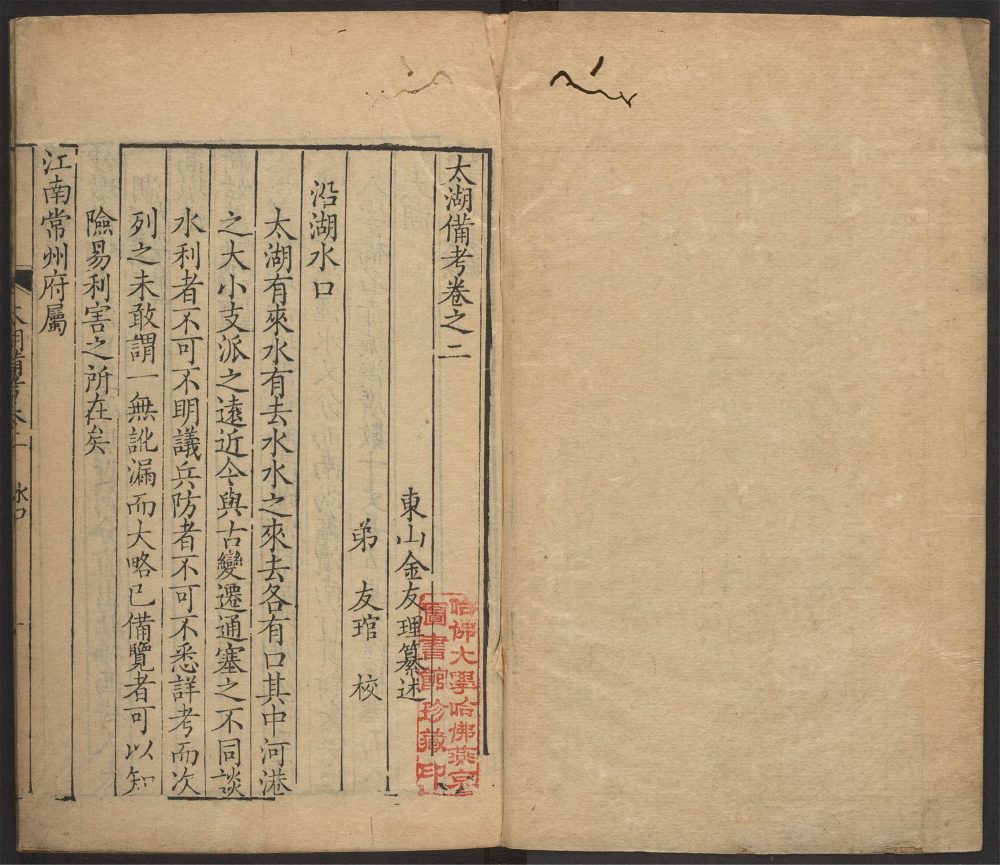 太湖備考卷之二
東山金友理纂述
弟友琯校
沿湖水口
太湖有來水有去水水之來去各有口其中河港
之大小支派之遠近今與古變遷通塞之不同談
水利者不可不明議兵防者不可不悉詳考而次
列之未敢謂一無訛漏而大略已備覽者可以知
險易利害之所在矣
江南常州府屬
太湖備考卷二
水口
哈佛大學哈佛燕京
圖書館珍藏印